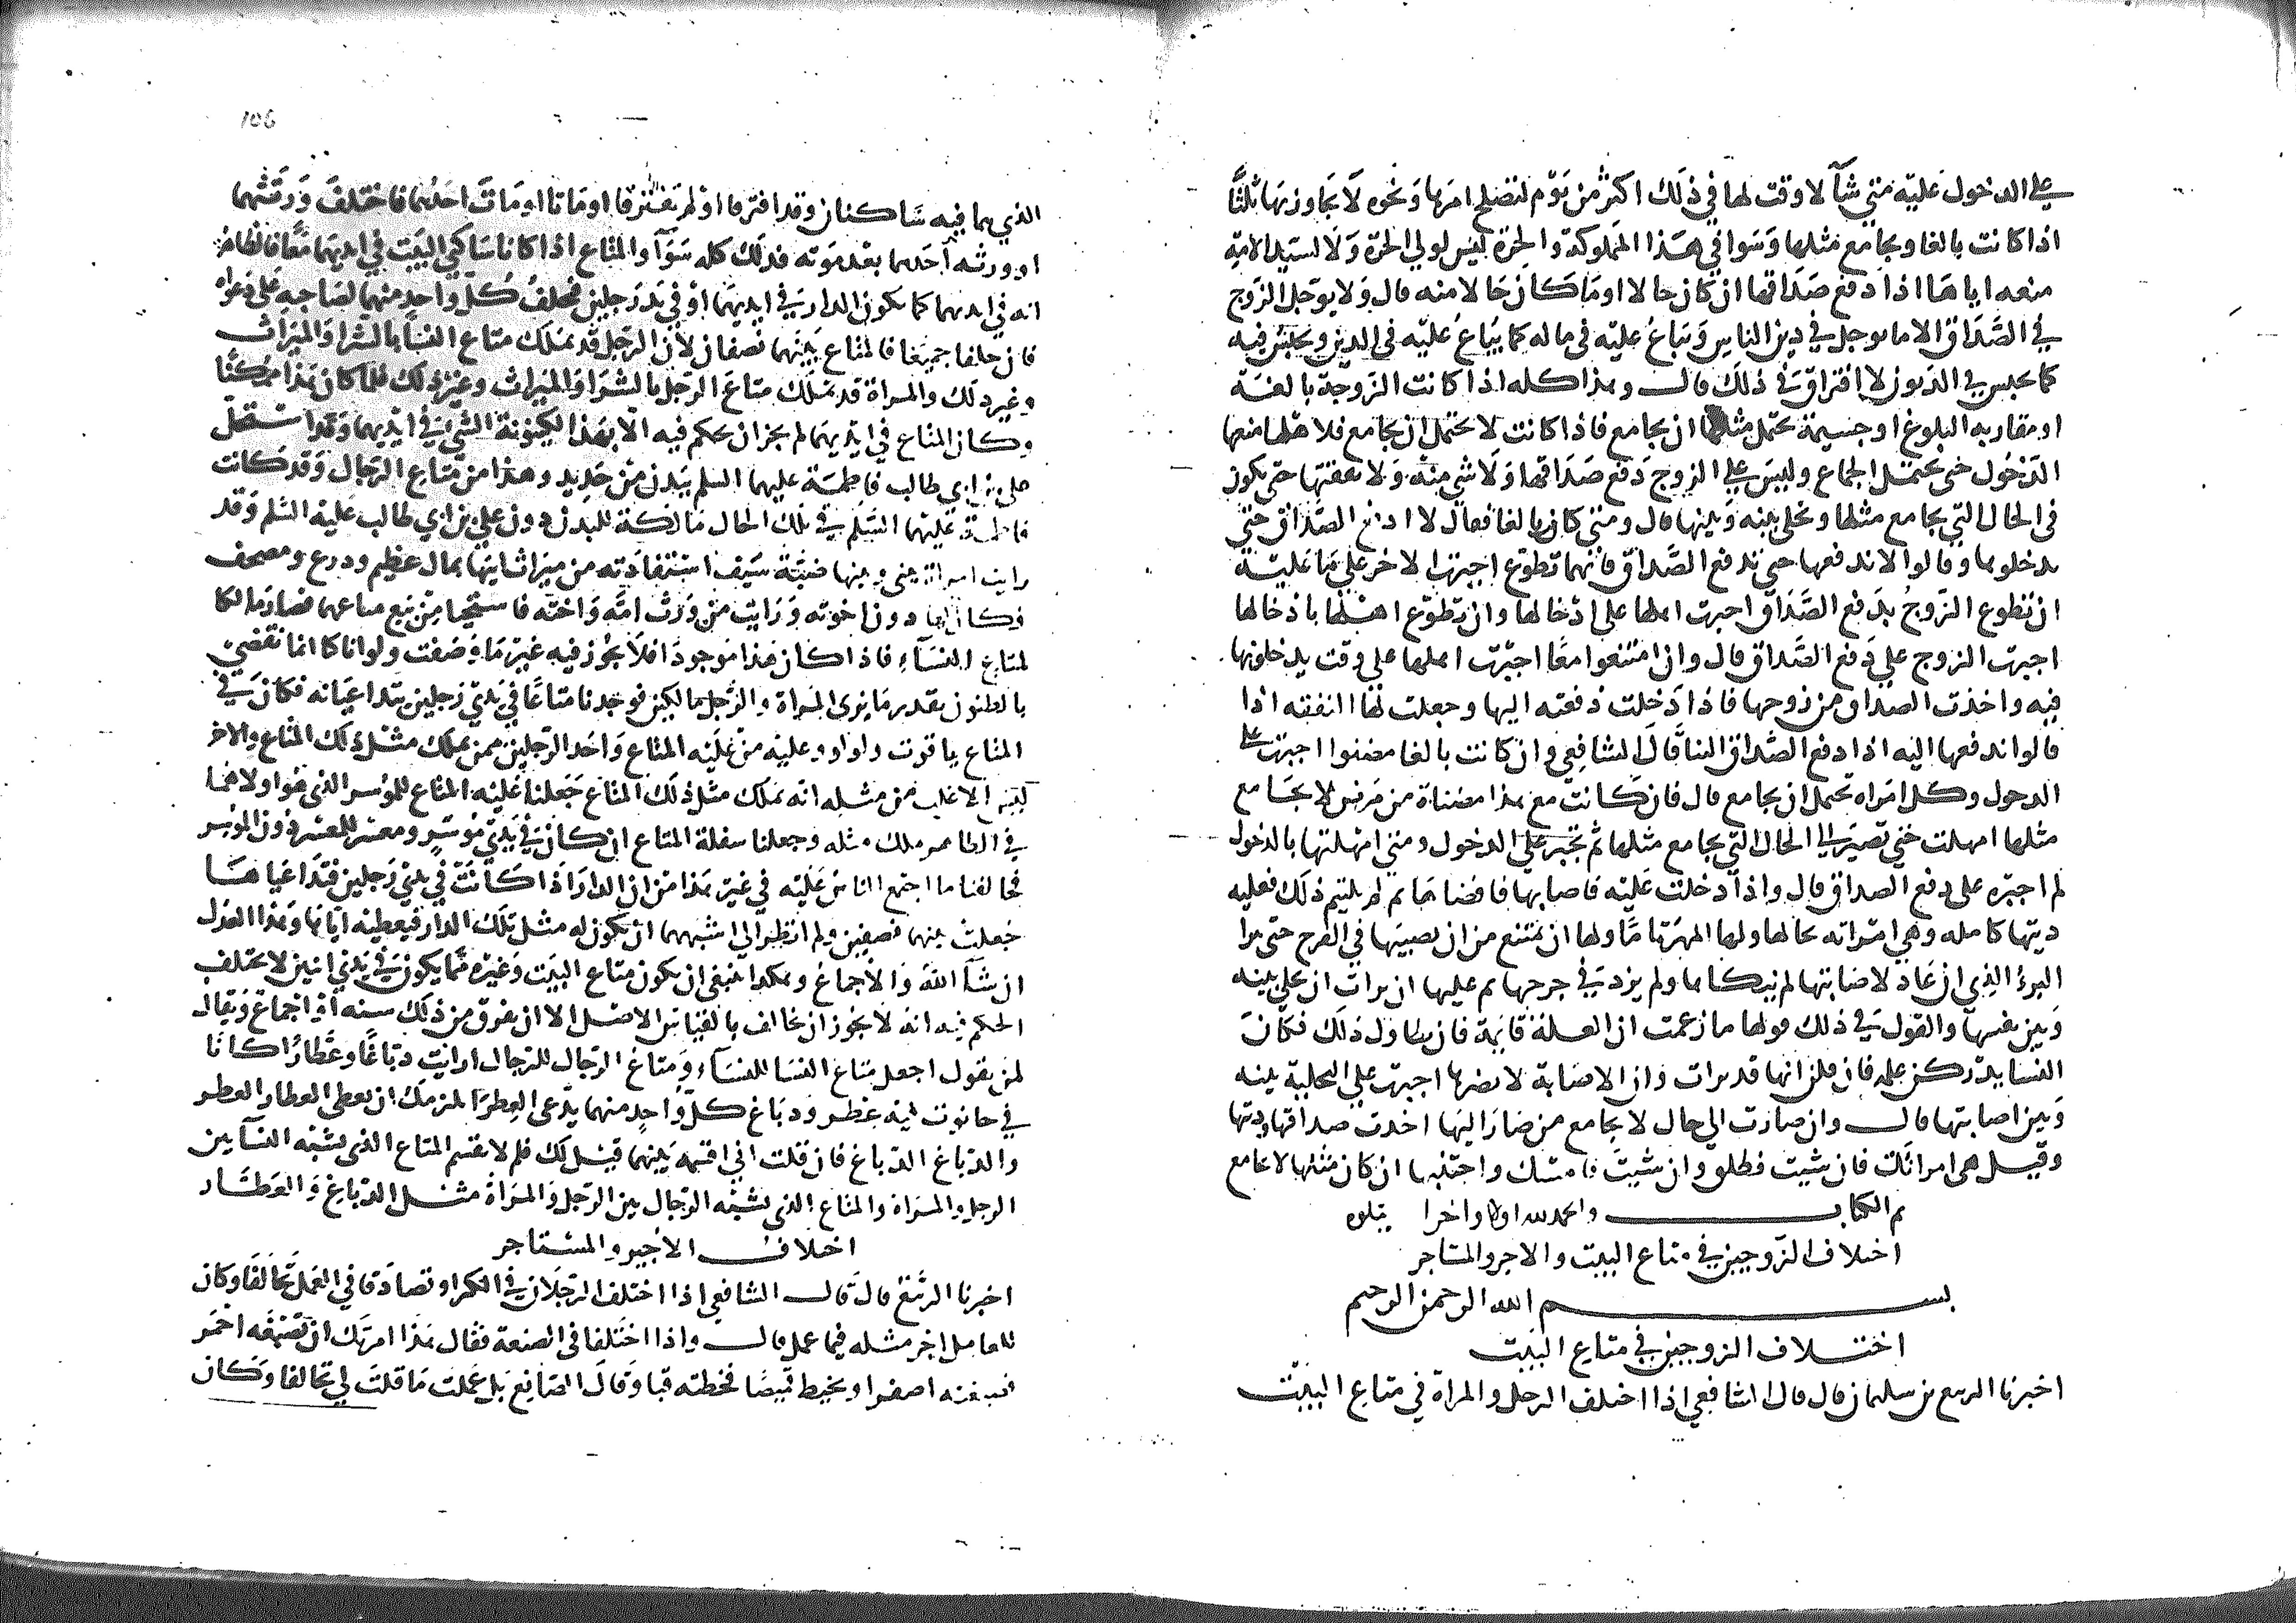 على الدخول عليه متى شآ لا وقت لها في ذلك اكثر من يوم لتصلح امرها ونحوه لا يجاوز بها ثلثا
اذا كانت بالغا ويجامع مثلها وسوا في هذا المملوكة والحرة ليس لولي الحرة ولا لسيد الامة
منعه اياها اذا دفع صداقها ان كان حالا او ما كان حالا منه قال ولا يوجل الزوج
في الصداق الا ما يوجل في دين الناس وتباع عليه في ماله كما يباع عليه في الدين ويحبس فيه
كما يحبس في الديون لا افتراق في ذلك قال وهذا كله اذا كانت الزوجة بالغة
او مقاربه البلوغ او جسيمة يحتمل مثلها ان يجامع فاذا كانت لا تحتمل ان يجامع فلاهلها منعها
الدخول حتى تحتمل الجماع وليس على الزوج دفع صداقها ولا شي منه ولا نفقتها حتى يكون
في الحال التي يجامع مثلها ويخلى بينه وبينها قال ومتى كان بالغا فقال لا ادفع الصداق حتى
يدخلوها وقالوا لا ندفعها حتى تدفع الصداق فايهما تطوع اجبرت الاخر على ما عليه
ان تطوع الزوج بدفع الصداق اجبرت اهلها على ادخالها وان تطوع اهلها بادخالها
اجبرت الزوج على دفع الصداق قال وان امتنعوا معا اجبرت اهلها على وقت يدخلونها
فيه واخذت الصداق من زوجها فاذا دخلت دفعته اليها وجعلت لها النفقه اذا
قالوا ندفعها اليه اذا دفع الصداق الينا قال الشافعي وان كانت بالغا مضنوا اجبرت على
الدخول وكل امراه تحتمل ان يجامع قال فان كانت مع هذا مضناة من مرض لا يجامع
مثلها امهلت حتى تصير الى الحال التي يجامع مثلها ثم تجبر على الدخول ومتى امهلتها بالدخول
لم اجبره على دفع الصداق قال واذا دخلت عليه فاصابها فافضاها ثم لم يلتيم ذلك فعليه
ديتها كامله وهي امراته بحالها ولها المهر تاما ولها ان تمتنع من ان يصيبها في الفرج حتى تبرا
البرؤ الذي ان عاد لاصابتها لم ينكاها ولم يزد في جرحها ثم عليها ان برات ان تخلي بينه
وبين نفسها والقول في ذلك قولها ما زعمت ان العلة قايمة فان تطاول ذلك فكان
النسا يدركن علمه فان قلن انها قد برات وان الاصابة لا تضرها اجبرت على التخلية بينه
وبين اصابتها قال وان صارت الى حال لا يجامع من صار اليها اخذت صداقها وديتها
وقيل هى امراتك فان شيت فطلق وان شيت فامسك واجتنبها ان كان مثلها لا يجامع
تم الكتاب والحمد لله اولا واخرا يتلوه
اختلاف الزوجين في متاع البيت والاجير والمستاجر
بسم الله الرحمن الرحيم
اختلاف الزوجين في متاع البيت
اخبرنا الربيع بن سليمان قال قال الشافعي اذا اختلف الرجل والمراة في متاع البيت
106
الذي هما فيه ساكنان وقد افترقا او لم يفترقا او ماتا او مات احدهما فاختلف ورثتهما
او ورثه احدهما بعد موته فذلك كله سوآ والمتاع اذا كانا ساكني البيت في ايديهما معا فالظاهر
انه في ايديهما كما يكون الدار في ايديهما او في يد رجلين فيحلف كل واحد منهما لصاحبه على دعواه
فان حلفا جميعا فالمتاع بينهما نصفان لان الرجل قد يملك متاع النسا بالشرا والميراث
وغير ذلك والمراة قد تملك متاع الرجل بالشرا والميراث وغير ذلك فلما كان هذا ممكنا
وكان المتاع في ايديهما لم يجز ان يحكم فيه الا بهذا لكينونة الشي في ايديهما وقد استحل
على بن ابي طالب فاطمة عليهما السلم ببدن من حديد وهذا من متاع الرجال وقد كانت
فاطمة عليهما السلم في تلك الحال مالكة للبدن دون علي بن ابي طالب عليه السلم وقد
رايت امراة بيني وبينها ضبة سيف استفادته من ميراث ابيها بمال عظيم ودرع ومصحف
فكان لها دون اخوته ورايت من ورث امه واخته فاستحيا من بيع متاعهما فصار مالكا
لمتاع النسآء فاذا كان هذا موجودا فلا يجوز فيه غير ما وصفت ولو انا كنا انما نقضي
بالظنون بقدر ما يرى المراة والرجل مالكين فوجدنا متاعا في يدي رجلين يتداعيانه فكان في
المتاع ياقوت ولولو وعليه من علية المتاع واحد الرجلين ممن يملك مثل ذلك المتاع والاخر
ليس الاغلب من مثله انه يملك مثل ذلك المتاع جعلنا علية المتاع للموسر الذي هو اولاهما
في الظاهر بملك مثله وجعلنا سفلة المتاع ان كان في يدي موسر ومعسر للمعسر دون الموسر
فخالفنا ما اجتمع الناس عليه في غير هذا من ان الدار اذا كانت في يدي رجلين فتداعياها
جعلت بينهما نصفين ولم انظر الى اشبههما ان يكون له مثل تلك الدار فيعطيه اياها وهذا العدل
ان شآ الله والاجماع وهكذا ينبغي ان يكون متاع البيت وغيره مما يكون في يدي اثنين لا يختلف
الحكم فيه انه لا يجوز ان يخالف بالقياس الاصل الا ان يفرق من ذلك سنه او اجماع ويقال
لمن يقول اجعل متاع النسا للنسآء ومتاع الرجال للرجال ارايت دباغا وعطارا كانا
في حانوت فيه عطر ودباغ كل واحد منهما يدعى العطر ايلزمك ان تعطى العطار العطر
والدباغ الدباغ فان قلت اني اقسمه بينهما قيل لك فلم لا تقسم المتاع الذي يشبه النسآ بين
الرجل والمراة والمتاع الذي يشبه الرجال بين الرجل والمراة مثل الدباغ والعطار
اختلاف الاجير والمستاجر
اخبرنا الربيع قال قال الشافعي اذا اختلف الرجلان في الكرا وتصادقا في العمل تحالفا وكان
للعامل اجر مثله فيما عمل قال واذا اختلفا في الصنعة فقال هذا امرتك ان تصبغه احمر
فصبغته اصفر او يخيط قميصا فخطته قبا وقال الصانع بل عملت ما قلت لي تحالفا وكان